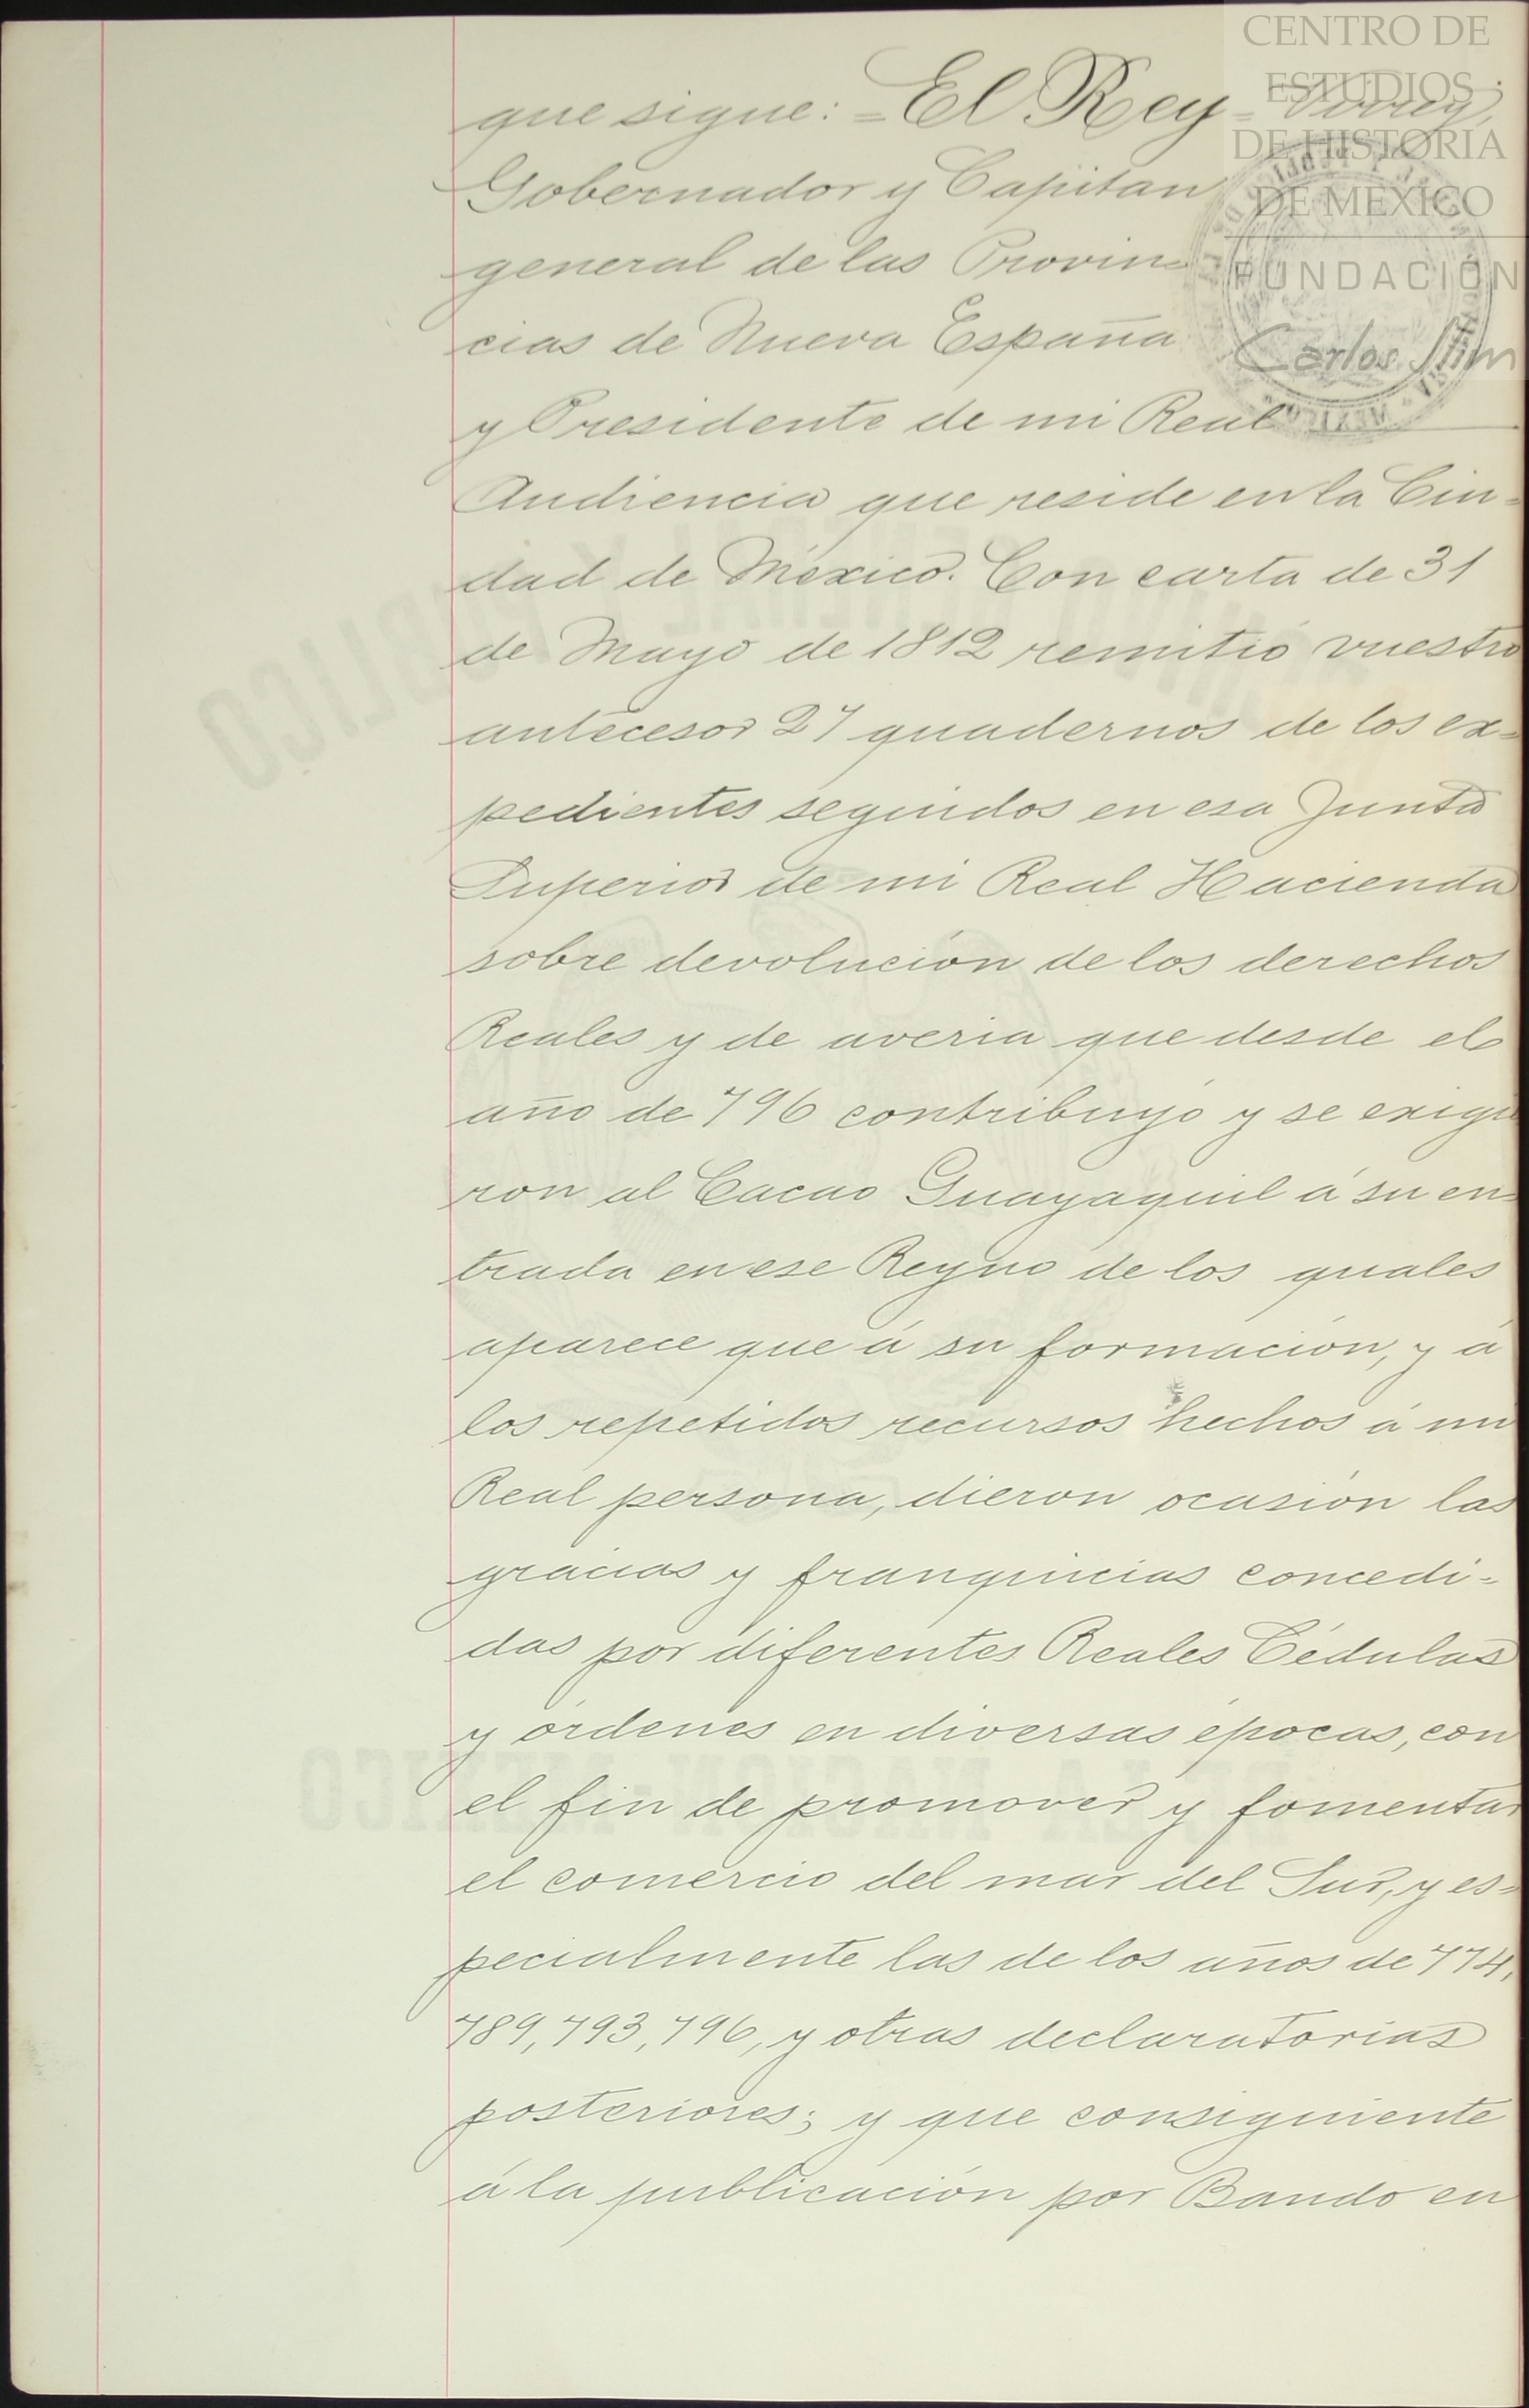 CENTRO DE
ESTUDIOS
DE HISTORIA
DE MEXICO
FUNDACIÓN
Carlos Slim
que sigue: = El Rey = Virrey,
Gobernador y Capitan
general de las Provin=
cias de Nueva España
y Presidente de mi Real
Audiencia que reside en la Ciu=
dad de México. Con carta de 31
de Mayo de 1812 remitió vuestro
antecesor 27 quadernos de los ex=
pedientes seguidos en esa Junta
Superior de mi Real Hacienda
sobre devolución de los derechos
Reales y de averia que desde el
año de 796 contribuyó y se exigie
ron al Cacao Guayaquil á su en=
trada en ese Reyno de los quales
aparece que á su formación, y á
los repetidos recursos hechos á mi
Real persona, dieron ocasión las
gracias y franquicias concedi=
das por diferentes Reales Cédulas
y órdenes en diversas épocas, con
el fin de promover y fomentar
el comercio del mar del Sur, y es=
pecialmente las de los años de 774,
789, 793, 796, y otras declaratorias
posteriores; y que consiguiente
á la publicación por Bando en